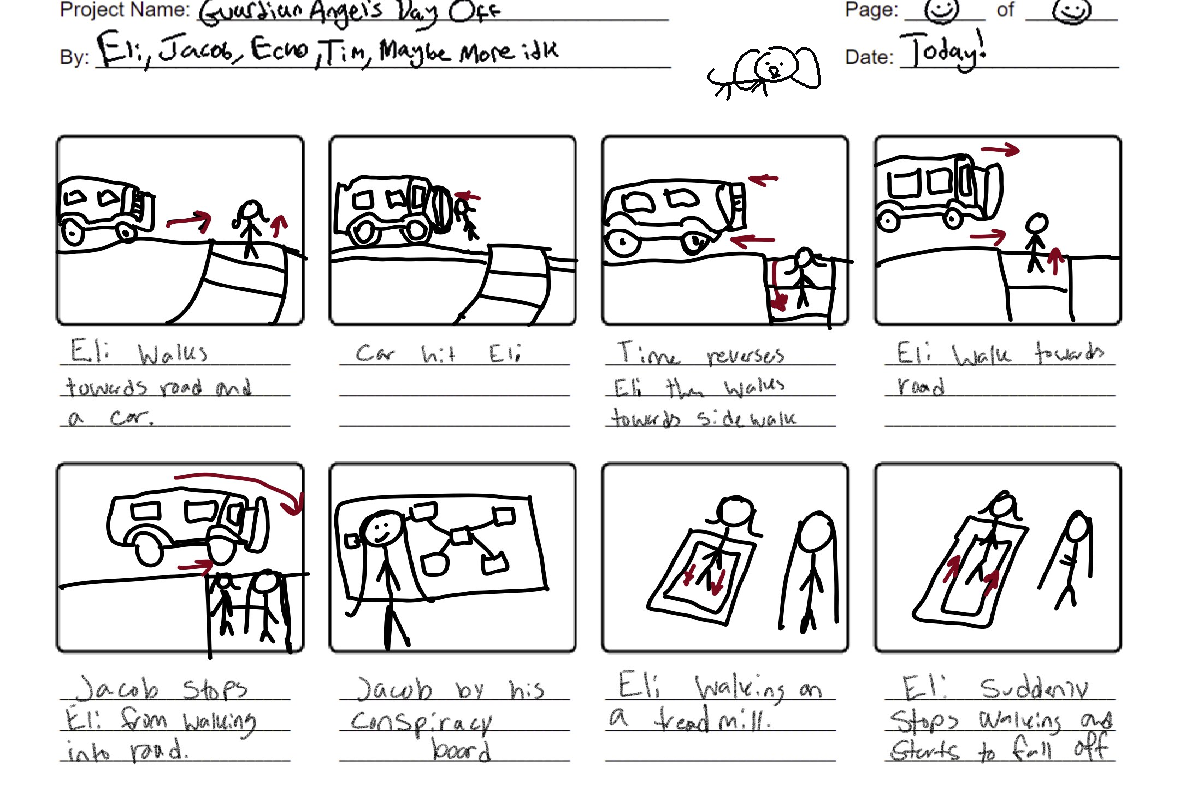 Project Name: Guardian Angel's Day Off
Page: of
By: Eli, Jacob, Echo, Tim, Maybe More idk
Date: Today!
Eli Walks
towards road and
a car.
Car hit Eli
Time reverses
Eli then walks
towards sidewalk
Eli walk towards
road
Jacob Stops
Eli from walking
into road.
Jacob by his
conspiracy
board
Eli walking on
a treadmill.
Eli Suddenly
Stops walking and
starts to fall off